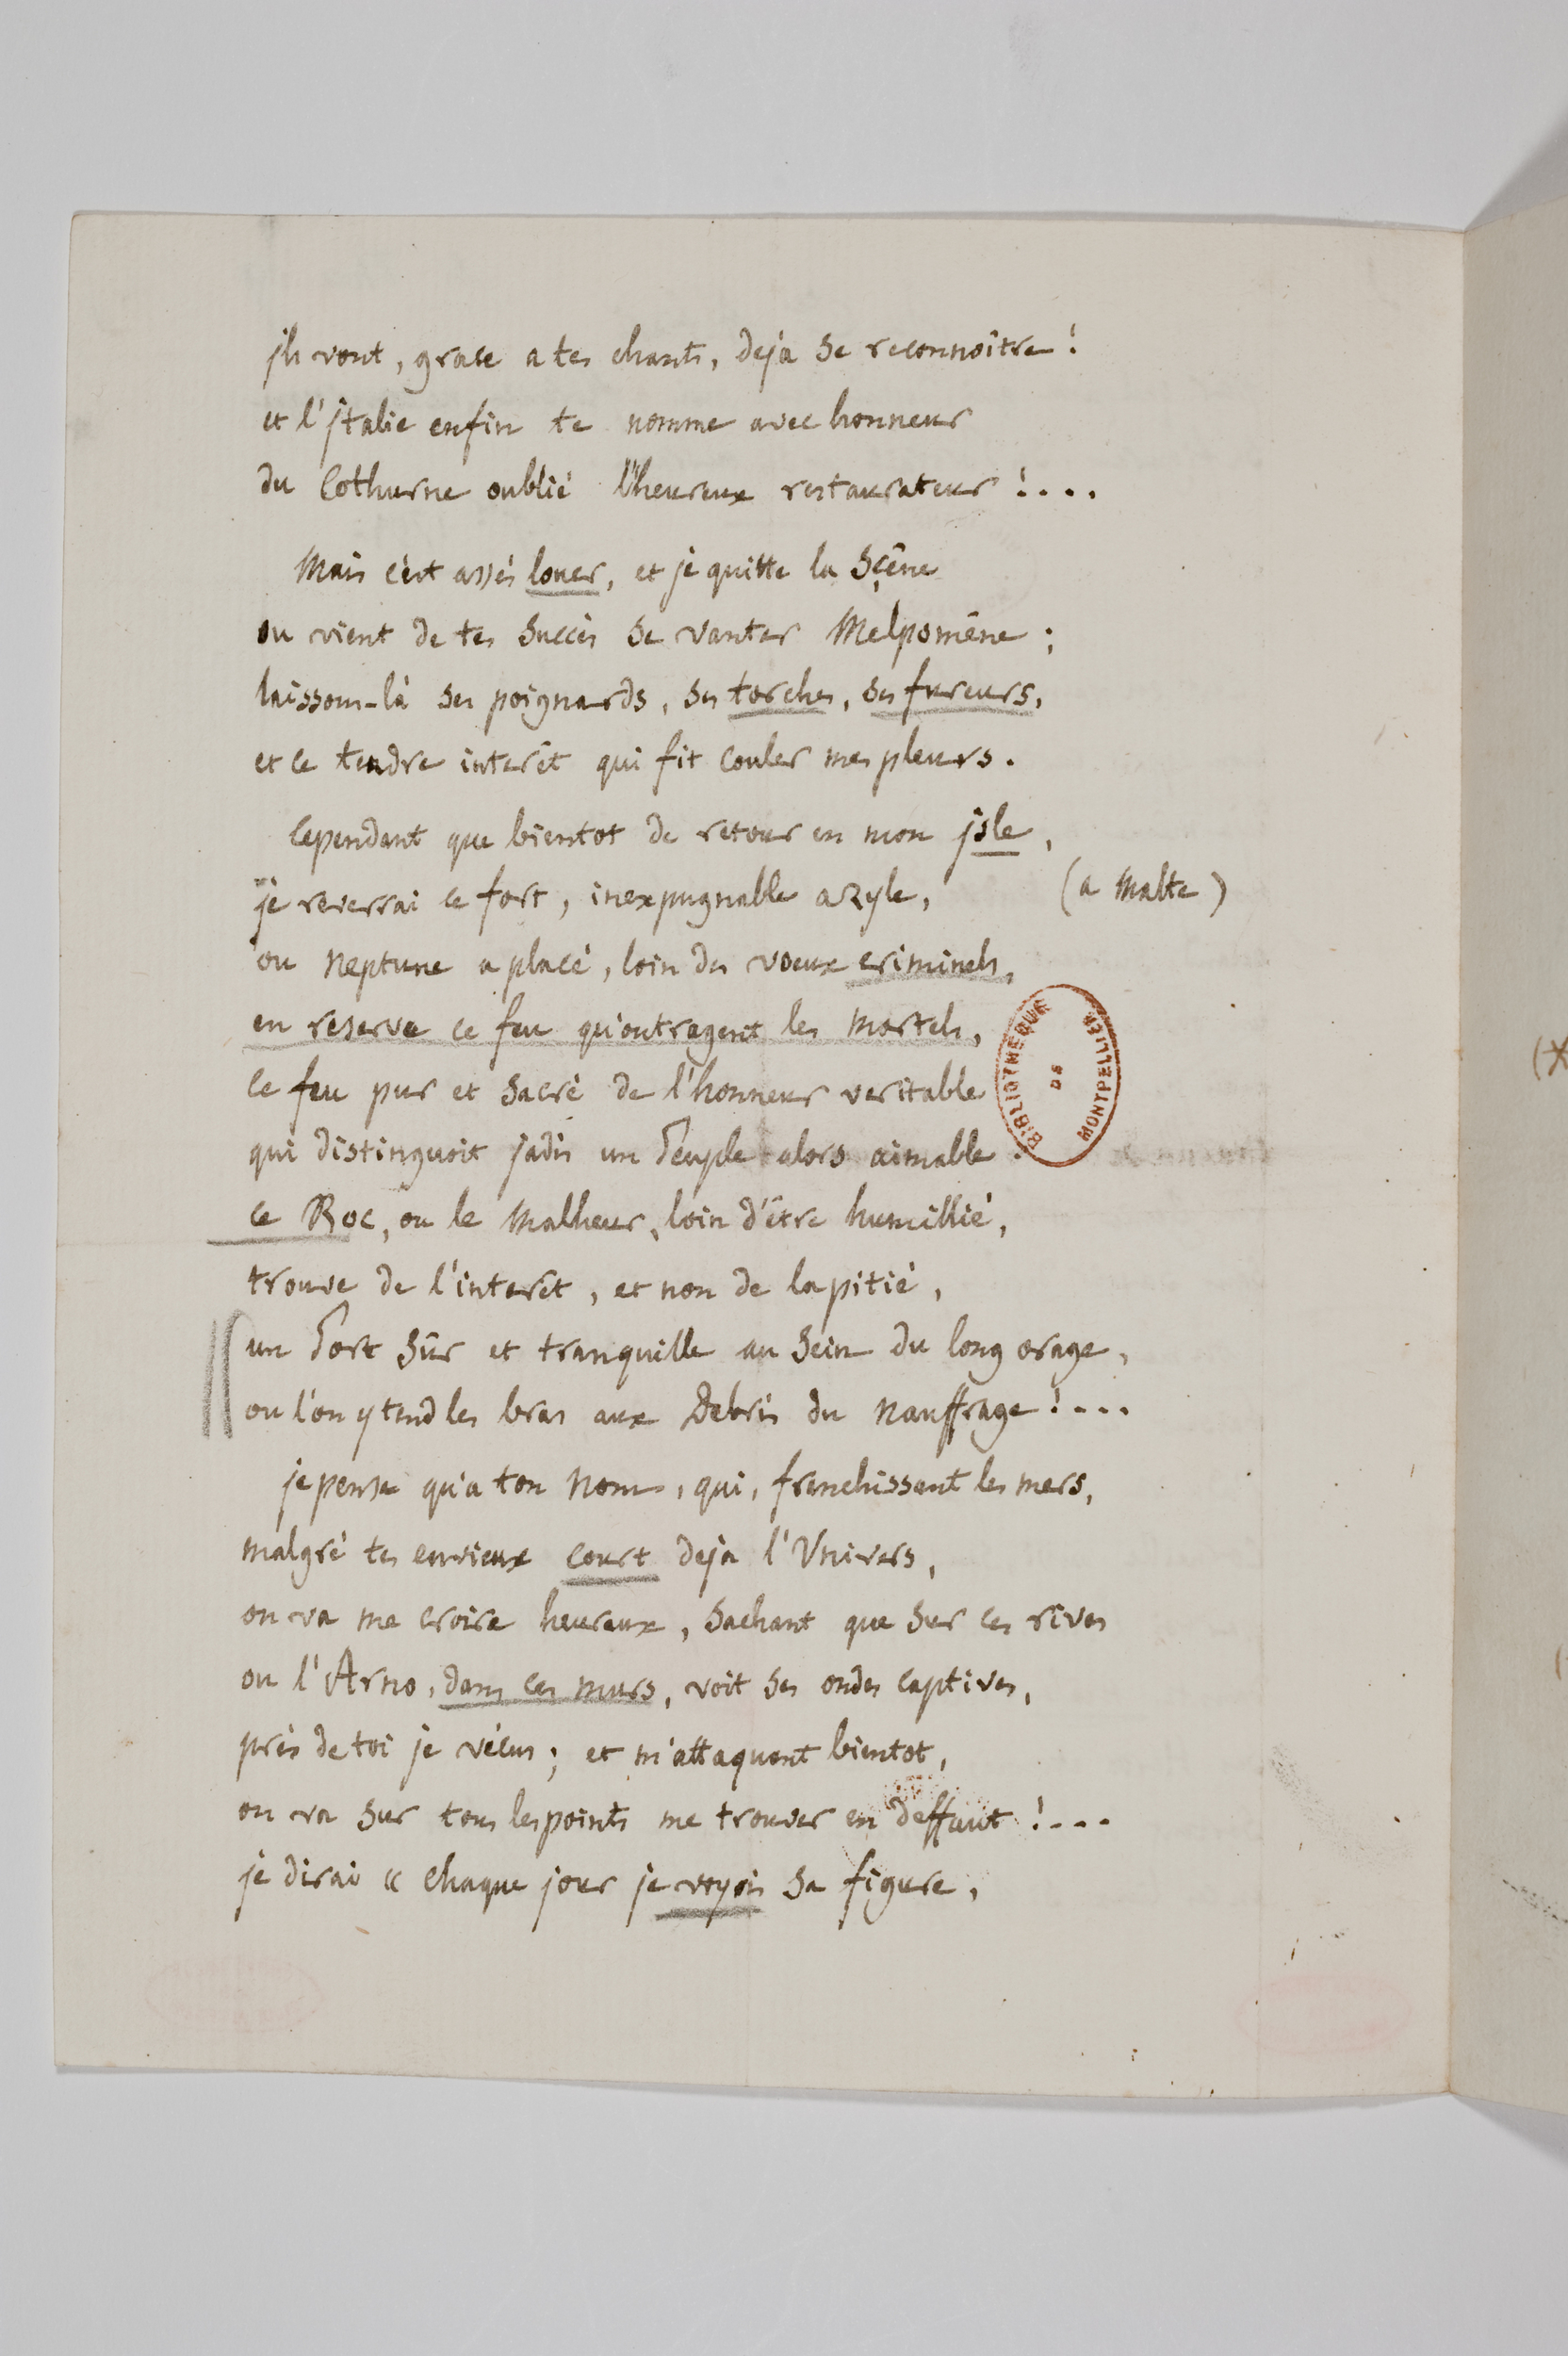 jls vont, grace a tes chants, deja se reconnoître !
et l'jtalie enfin te nomme avec honneur
du Cothurne oublié l'heureux restaurateur !....
Mais c'est assés louer, et je quitte la Sçêne
ou vient de tes Succès se vanter Melpomêne ;
laissons-là ses poignards, ses torches, ses fureurs,
et ce tendre interêt qui fit couler mes pleurs.
Cependant que bientot de retour en mon jsle,
je reverrai ce fort, inexpugnable azyle,
(a Malte)
ou Neptune a placé, loin des voeux criminels,
en reserve ce feu qu'outragent les Mortels,
ce feu pur et sacré de l'honneur veritable
qui distinguoit jadis un Peuple alors aimable.
ce Roc, ou le Malheur, loin d'être humillié,
trouve de l'interêt, et non de la pitié,
un Port sûr et tranquille au Sein du long orage,
ou l'on y tend les bras aux Debris du Nauffrage !...
je pense qu'a ton Nom, qui, franchissant les mers,
malgré tes envieux court deja l'Univers,
on va me croire heureux, sachant que sur ces rives
ou l'Arno, dans ces murs, voit ses ondes captives,
près de toi je vécus ; et m'attaquant bientot,
on va sur tous les points me trouver en deffaut !...
je dirai « chaque jour je voyois sa figure,
BIBLIOTHEQUE
DE
MONTPELLIER
(*